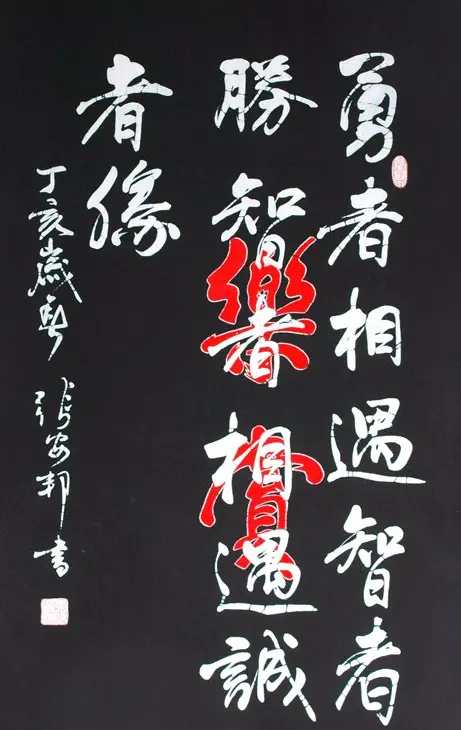 勇者相遇智者
勝智者相遇誠
者勝
丁亥歲 張安邦書
樂